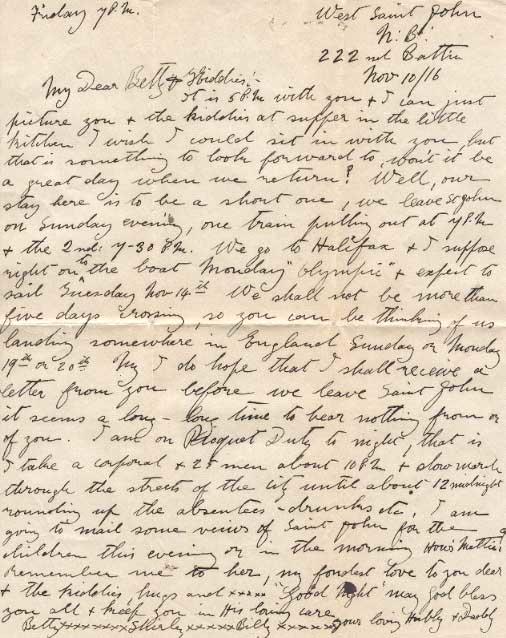 Friday 7 P.M.
West Saint John
N.B.
222nd Battn
Nov 10/16
My Dear Betty & Kiddies:-
It is 5 P.M with you & I can just
picture you & the kiddies at supper in the little
kitchen I wish I could sit in with you, but
that is something to look forward to, won't it be
a great day when we return? Well, our
stay here is to be a short one, we leave St John
on Sunday evening, one train pulling out at 7 P.M
& the 2nd: 7-30 P.M. We go to Halifax & I suppose
right on to the boat Monday "Olympic" & expect to
sail Tuesday Nov 14th We shall not be more than
five days crossing, so you can be thinking of us
landing somewhere in England Sunday or Monday
19th or 20th My I do hope that I shall receive a
letter from you before we leave Saint John
it seems a long - long time to hear nothing from or
of you. I am on Picquet Duty to night, that is
I take a corporal & 25 men about 10 P.M & slow march
through the streets of the city until about 12 midnight
rounding up the absentees - drunks etc. I am
going to mail some views of Saint John for the
children this evening or in the morning How's Mattie?
Remember me to her, my fondest love to you dear
& the kiddies, hugs and xxxxx Good Night may God bless
you all & keep you in His loving care
your loving Hubby & Daddy
Betty xxxxxxx Shirley xxxxx Billy xxxxxxx